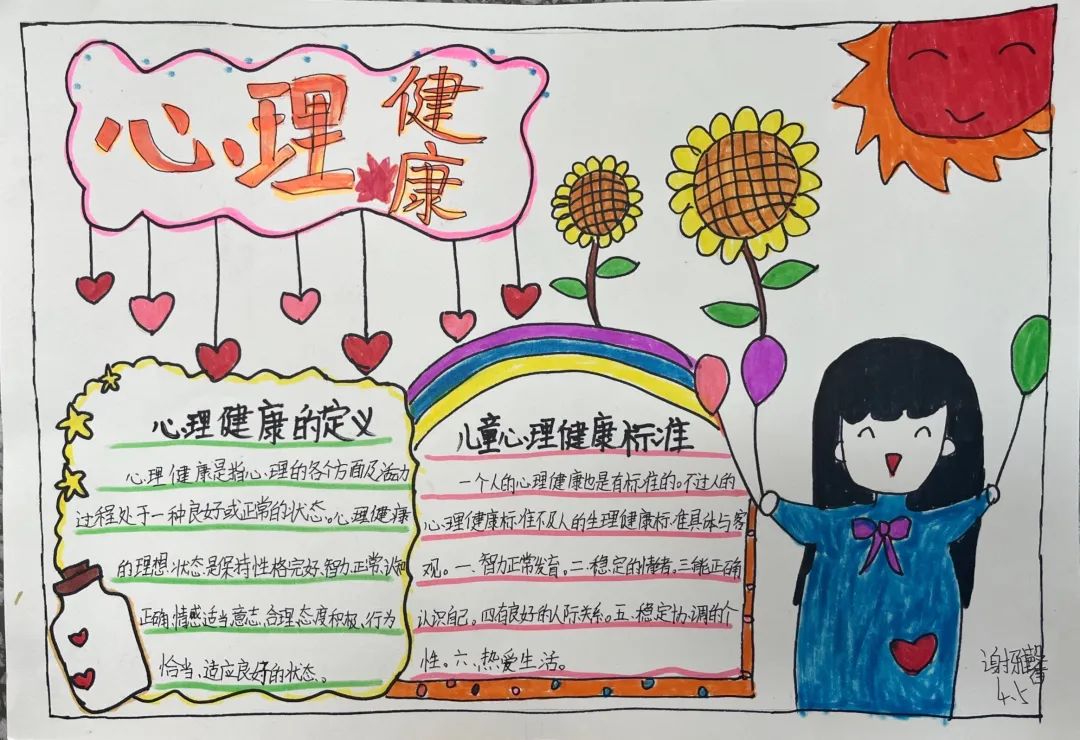 心理健康
心理健康的定义
心理健康是指心理的各个方面及活动
过程处于一种良好或正常的状态。心理健康
的理想状态是保持性格完好、智力正常、认知
正确、情感适当、意志合理、态度积极、行为
恰当、适应良好的状态。
儿童心理健康标准
一个人的心理健康也是有标准的。不过人的
心理健康标准不及人的生理健康标准具体与客
观。一、智力正常发育。二、稳定的情绪。三能正确
认识自己。四有良好的人际关系。五、稳定协调的个
性。六、热爱生活。
谢雅馨
4.5